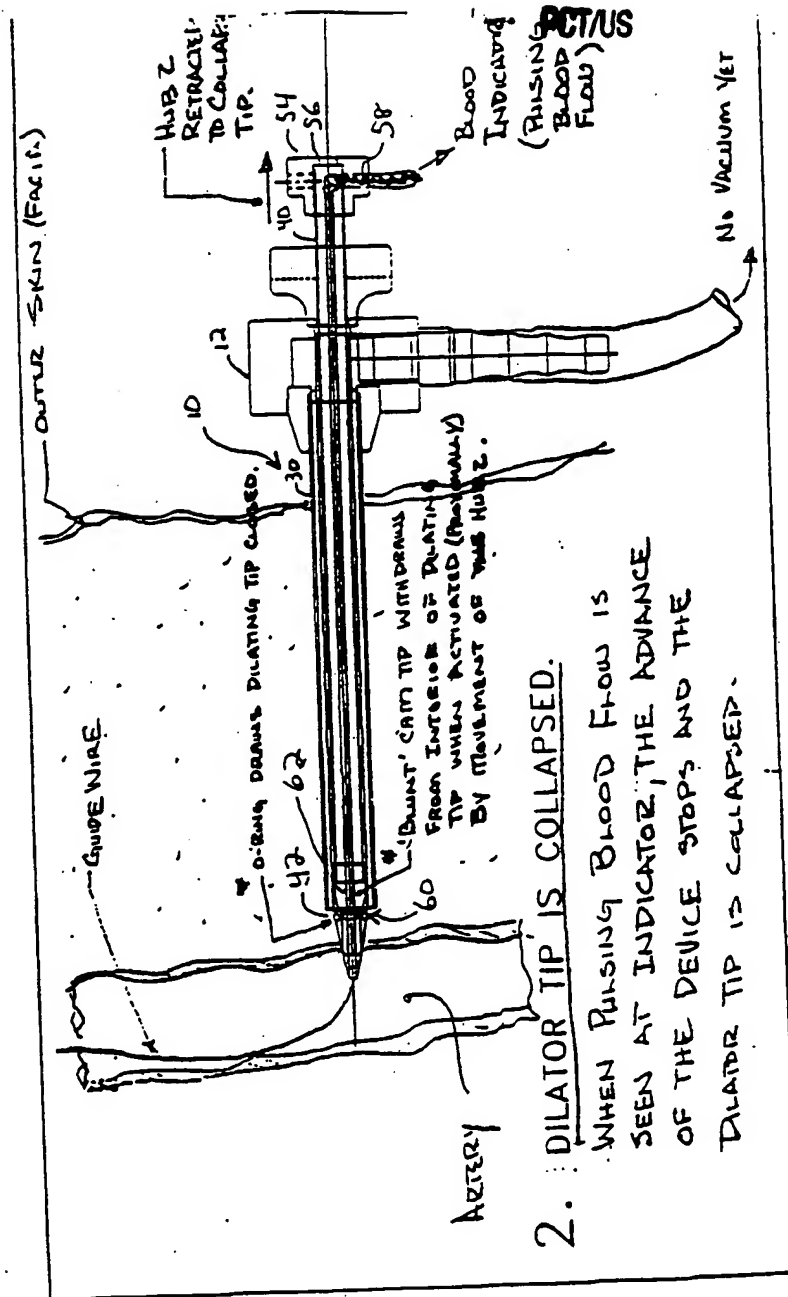 PCT/US
OUTER SKIN (FACIA)
HUB 2
RETRACTED
TO COLLAPSE
TIP.
54
56
58
40
BLOOD
INDICATOR
(PULSING
BLOOD
FLOW)
No VACUUM YET
12
10
30
GUIDE WIRE
* O-RING DRAWS DILATING TIP CLOSED.
62
* 'BLUNT' CAM TIP WITHDRAWS
FROM INTERIOR OF DILATING
TIP WHEN ACTIVATED (PROXIMALLY)
BY MOVEMENT OF HUB 2.
42
60
ARTERY
2. DILATOR TIP IS COLLAPSED.
WHEN PULSING BLOOD FLOW IS
SEEN AT INDICATOR, THE ADVANCE
OF THE DEVICE STOPS AND THE
DILATOR TIP IS COLLAPSED.